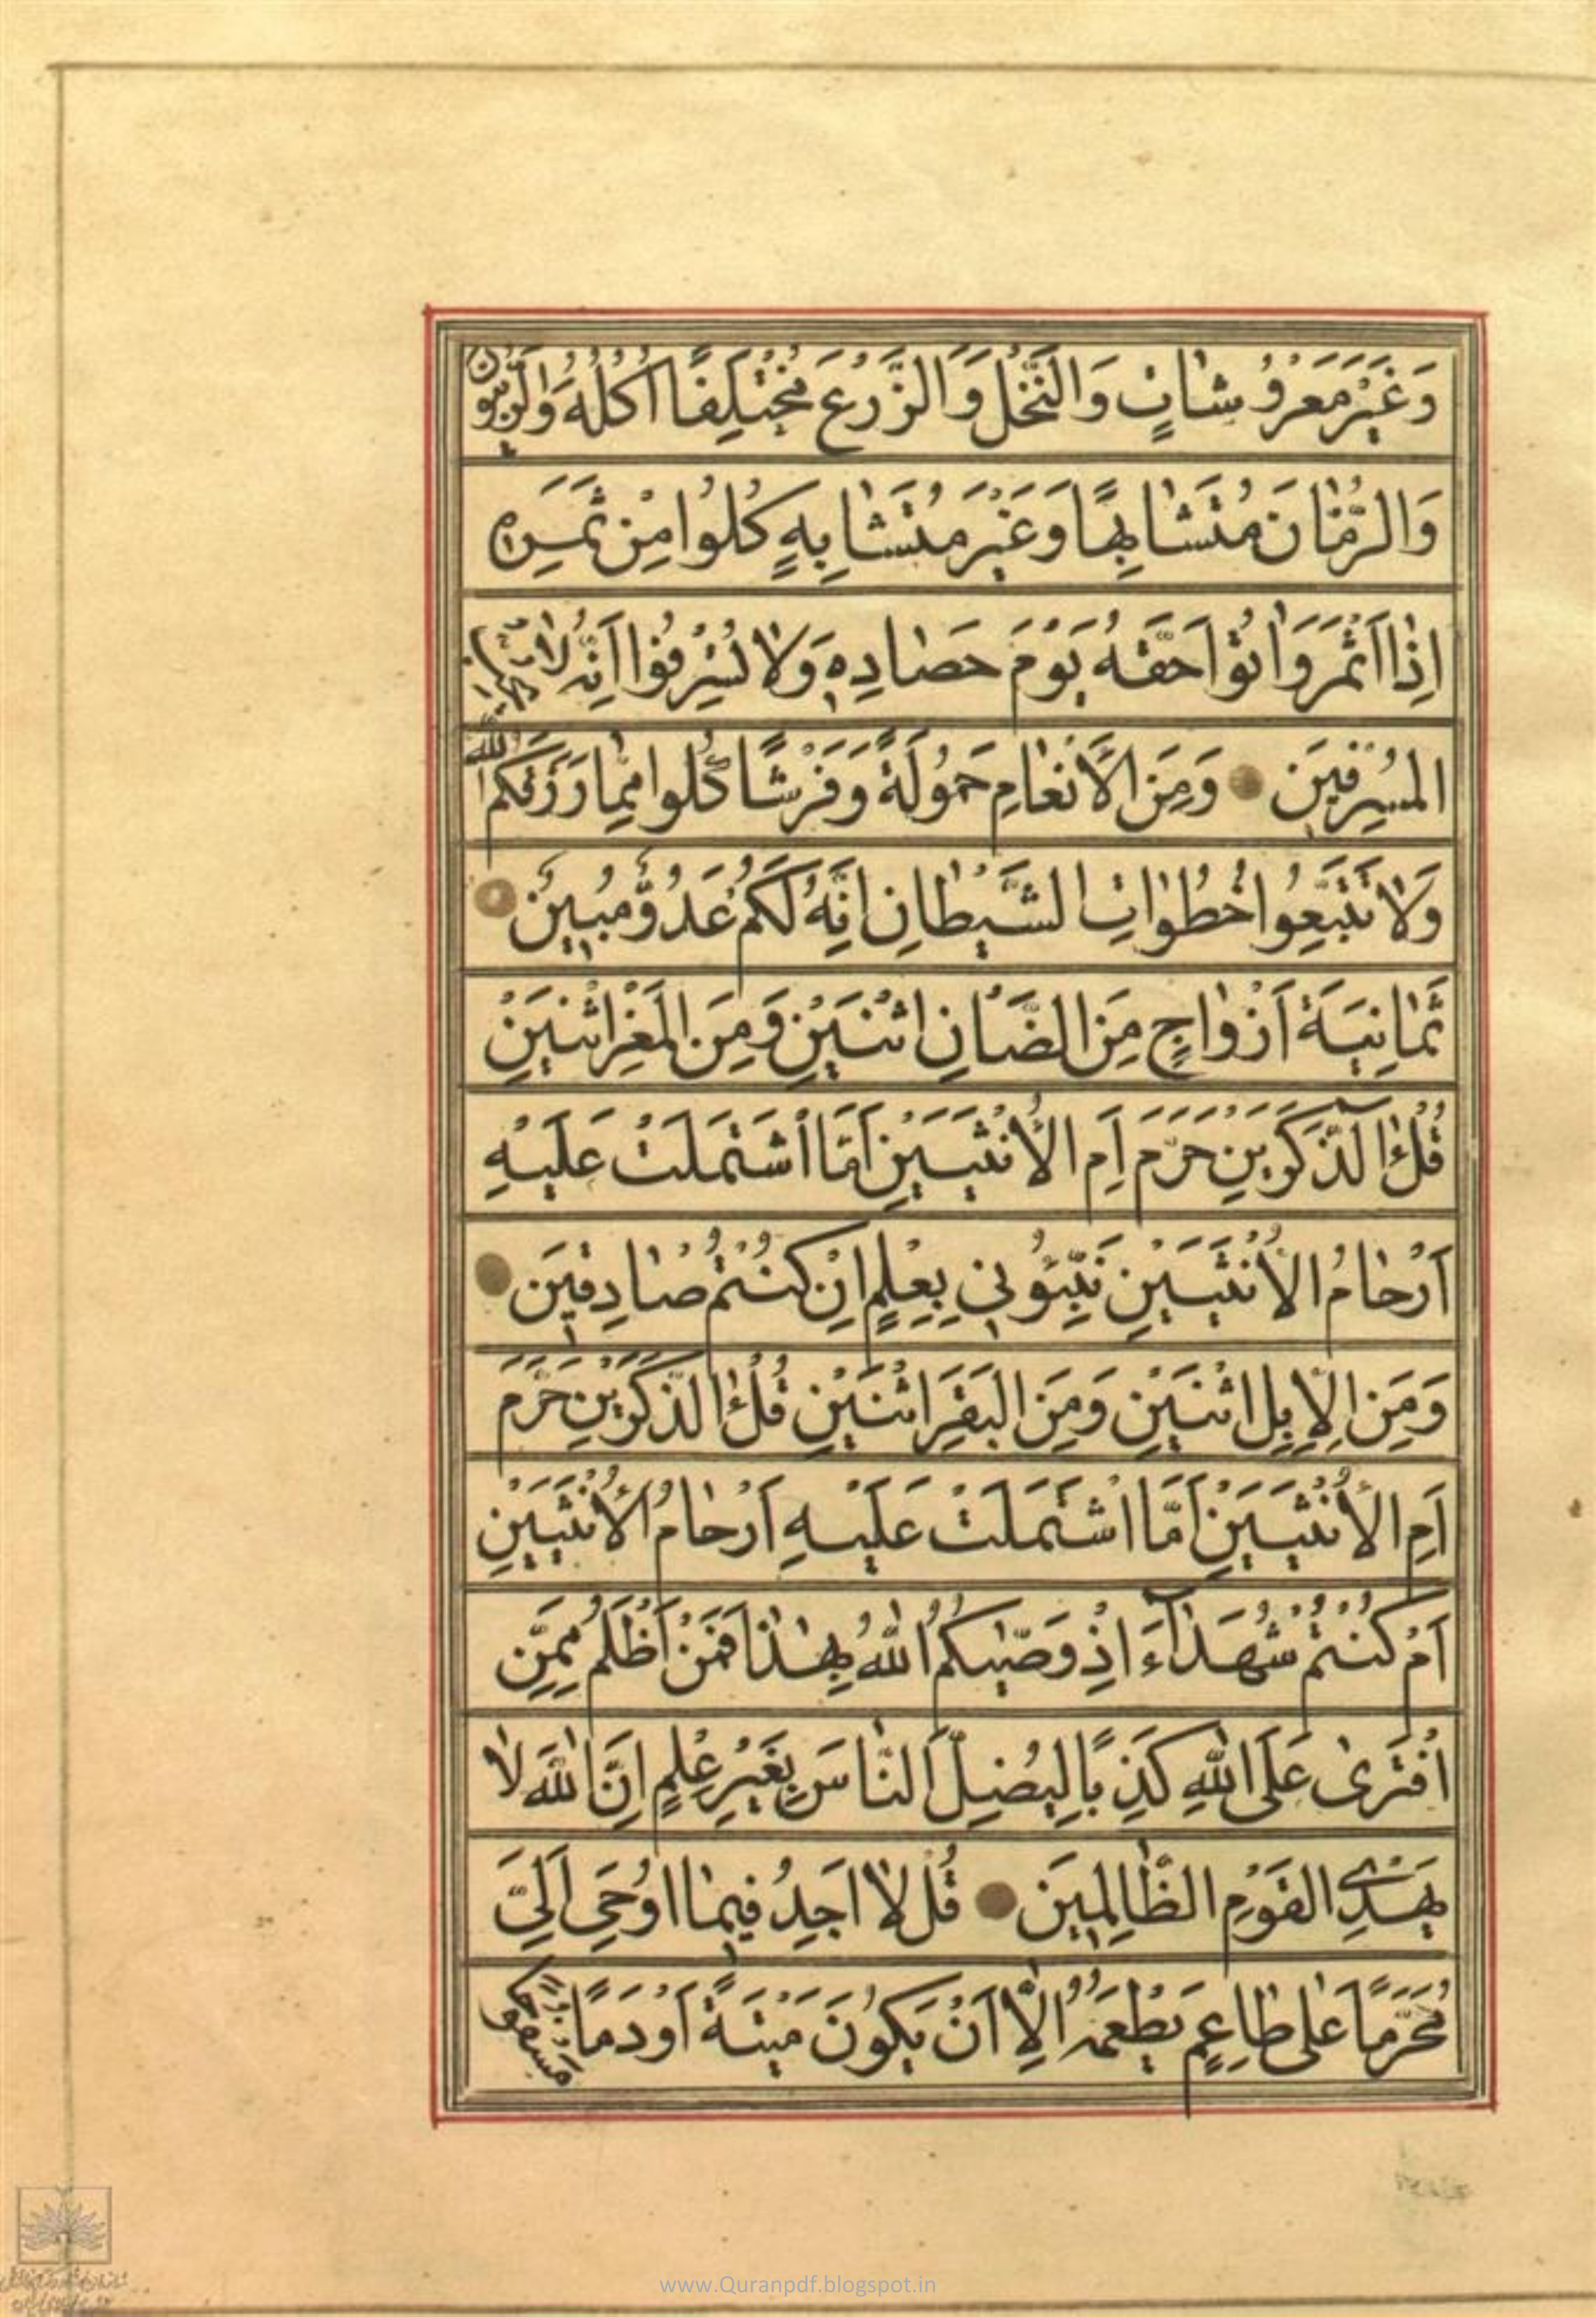 وَغَيْرَ مَعْرُوشَاتٍ وَالنَّخْلَ وَالزَّرْعَ مُخْتَلِفًا أُكُلُهُ وَالزَّيْتُونَ
وَالرُّمَّانَ مُتَشَابِهًا وَغَيْرَ مُتَشَابِهٍ كُلُوا مِنْ ثَمَرِهِ
اِذَا اَثْمَرَ وَاٰتُوا حَقَّهُ يَوْمَ حَصَادِهِ وَلَا تُسْرِفُوا اِنَّهُ لَا يُحِبُّ
الْمُسْرِفِينَ وَمِنَ الْاَنْعَامِ حَمُولَةً وَفَرْشًا كُلُوا مِمَّا رَزَقَكُمُ اللّٰهُ
وَلَا تَتَّبِعُوا خُطُوَاتِ الشَّيْطَانِ اِنَّهُ لَكُمْ عَدُوٌّ مُبِينٌ
ثَمَانِيَةَ اَزْوَاجٍ مِنَ الضَّانِ اثْنَيْنِ وَمِنَ الْمَعْزِ اثْنَيْنِ
قُلْ ءٰالذَّكَرَيْنِ حَرَّمَ اَمِ الْاُنْثَيَيْنِ اَمَّا اشْتَمَلَتْ عَلَيْهِ
اَرْحَامُ الْاُنْثَيَيْنِ نَبِّئُونِي بِعِلْمٍ اِنْ كُنْتُمْ صَادِقِينَ
وَمِنَ الْاِبِلِ اثْنَيْنِ وَمِنَ الْبَقَرِ اثْنَيْنِ قُلْ ءٰالذَّكَرَيْنِ حَرَّمَ
اَمِ الْاُنْثَيَيْنِ اَمَّا اشْتَمَلَتْ عَلَيْهِ اَرْحَامُ الْاُنْثَيَيْنِ
اَمْ كُنْتُمْ شُهَدَآءَ اِذْ وَصّٰيكُمُ اللّٰهُ بِهٰذَا فَمَنْ اَظْلَمُ مِمَّنِ
افْتَرٰى عَلَى اللّٰهِ كَذِبًا لِيُضِلَّ النَّاسَ بِغَيْرِ عِلْمٍ اِنَّ اللّٰهَ لَا
يَهْدِي الْقَوْمَ الظَّالِمِينَ قُلْ لَا اَجِدُ فِيمَا اُوحِيَ اِلَيَّ
مُحَرَّمًا عَلٰى طَاعِمٍ يَطْعَمُهُ اِلَّا اَنْ يَكُونَ مَيْتَةً اَوْ دَمًا مَسْفُوحًا
www.Quranpdf.blogspot.in